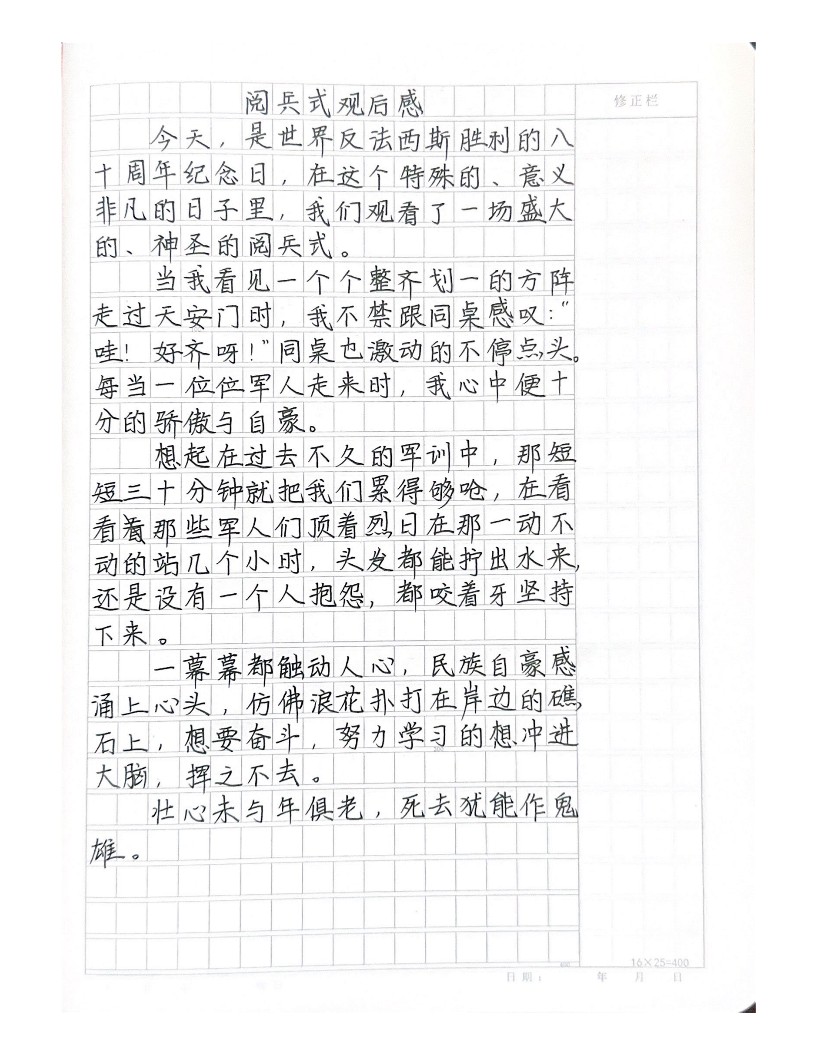 阅兵式观后感
修正栏
今天，是世界反法西斯胜利的八
十周年纪念日，在这个特殊的、意义
非凡的日子里，我们观看了一场盛大
的、神圣的阅兵式。
当我看见一个个整齐划一的方阵
走过天安门时，我不禁跟同桌感叹：“
哇！好齐呀！”同桌也激动的不停点头。
每当一位位军人走来时，我心中便十
分的骄傲与自豪。
想起在过去不久的军训中，那短
短三十分钟就把我们累得够呛，在看
看着那些军人们顶着烈日在那一动不
动的站几个小时，头发都能拧出水来，
还是设有一个人抱怨，都咬着牙坚持
下来。
一幕幕都触动人心，民族自豪感
涌上心头，仿佛浪花扑打在岸边的礁
石上，想要奋斗，努力学习的想冲进
大脑，挥之不去。
壮心未与年俱老，死去犹能作鬼
雄。
16×25=400
日期： 年 月 日